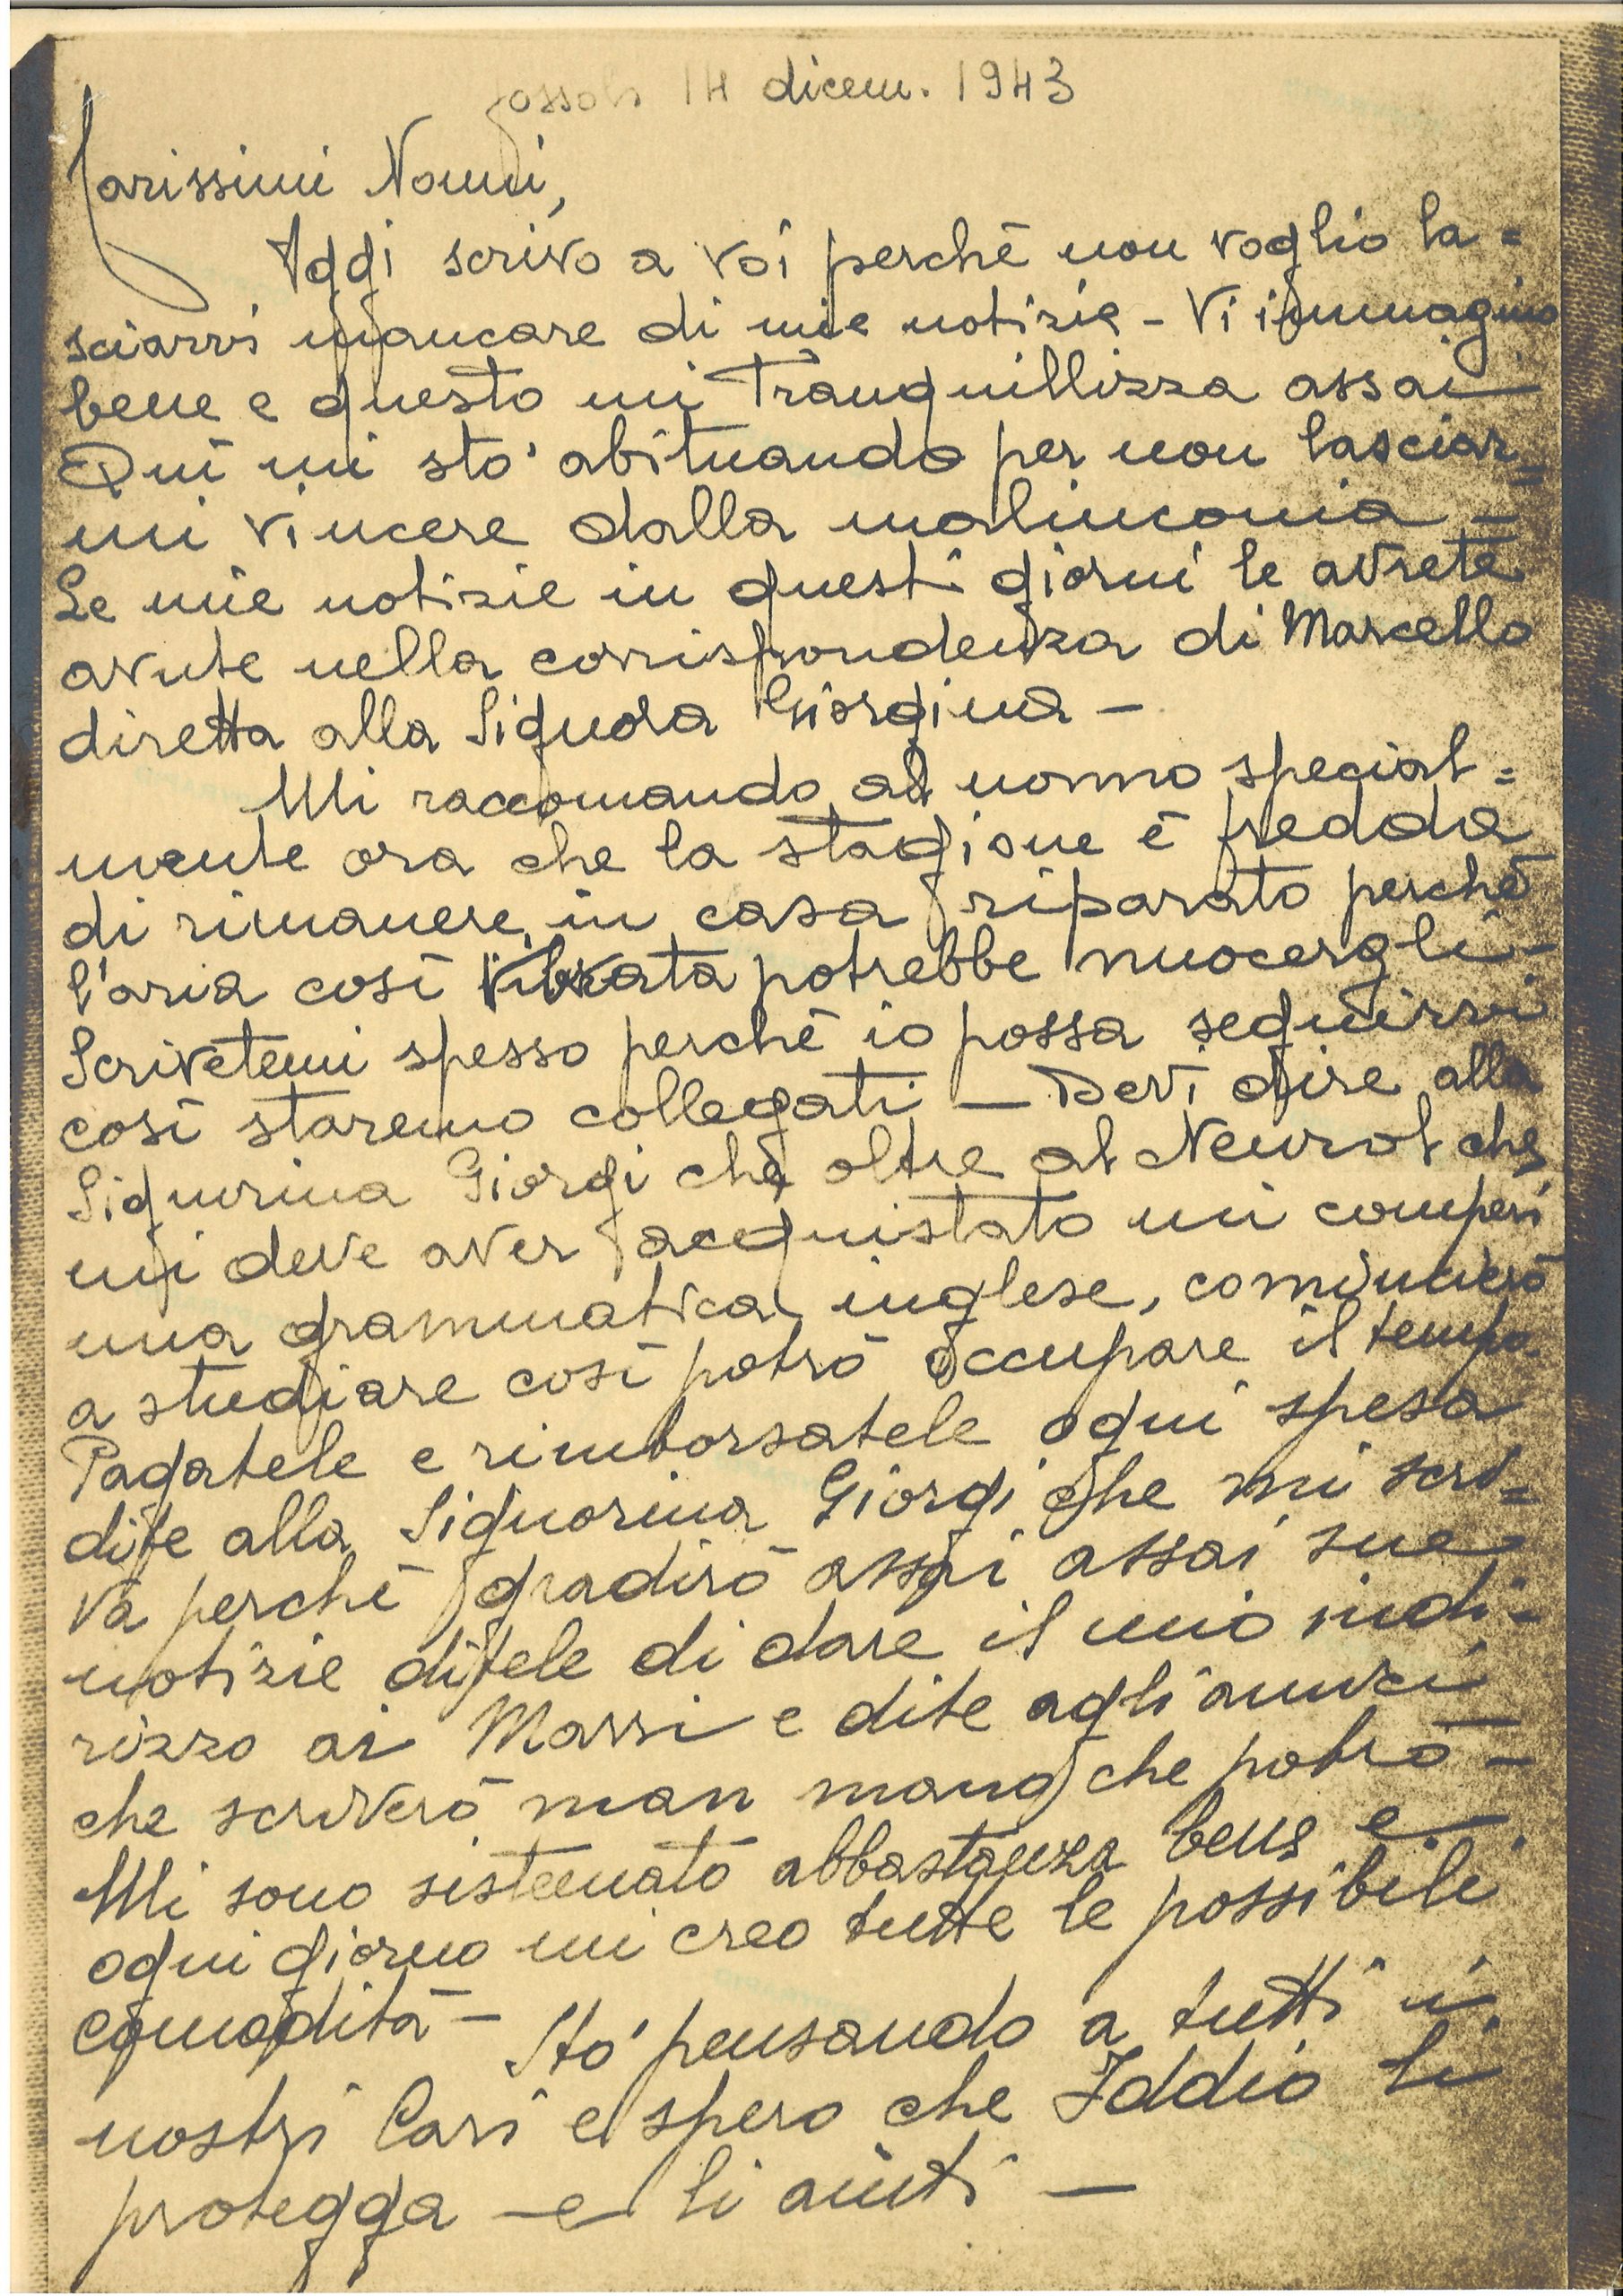 Fossoli 14 dicem. 1943
Carissimi Nonni,
Oggi scrivo a voi perché non voglio la=
sciarvi mancare di mie notizie - Vi immagino
bene e questo mi tranquillizza assai
Qui mi sto' abituando per non lasciar=
mi vincere dalla malinconia -
Le mie notizie in questi giorni le avrete
avute nella corrispondenza di Marcello
diretta alla Signora Giorgina -
Mi raccomando al nonno special=
mente ora che la stagione è fredda
di rimanere in casa riparato perché
l'aria così vibrata potrebbe nuocergli -
Scrivetemi spesso perché io possa seguirvi
così staremo collegati - Devi dire alla
Signorina Giorgi che oltre al Neurol che
mi deve aver acquistato mi comperi
una grammatica inglese, comincierò
a studiare così potrò occupare il tempo.
Pagatele e rimborsatele ogni spesa
dite alla Signorina Giorgi che mi scri=
va perché gradirò assai assai sue
notizie ditele di dare il mio indi=
rizzo ai Massi e dite agli amici
che scriverò man mano che potrò -
Mi sono sistemato abbastanza bene e
ogni giorno mi creo tutte le possibili
comodità - Sto' pensando a tutti i
nostri Cari e spero che Iddio li
protegga e li aiuti -